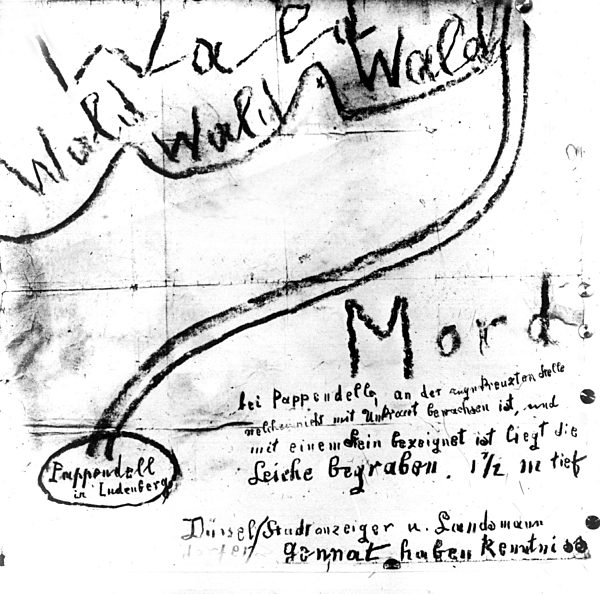 Wald
Wald
Wald
Wald
Mord
bei Pappendelle, an der angekreuzten Stelle
welche nicht mit Unkraut bewachsen ist, und
mit einem Stein bezeignet ist liegt die
Leiche begraben. 1 1/2 m tief
Pappendell
in Ludenberg
Düssel/Stadtanzeiger u. Landsmann
Gennat haben Kenntniss